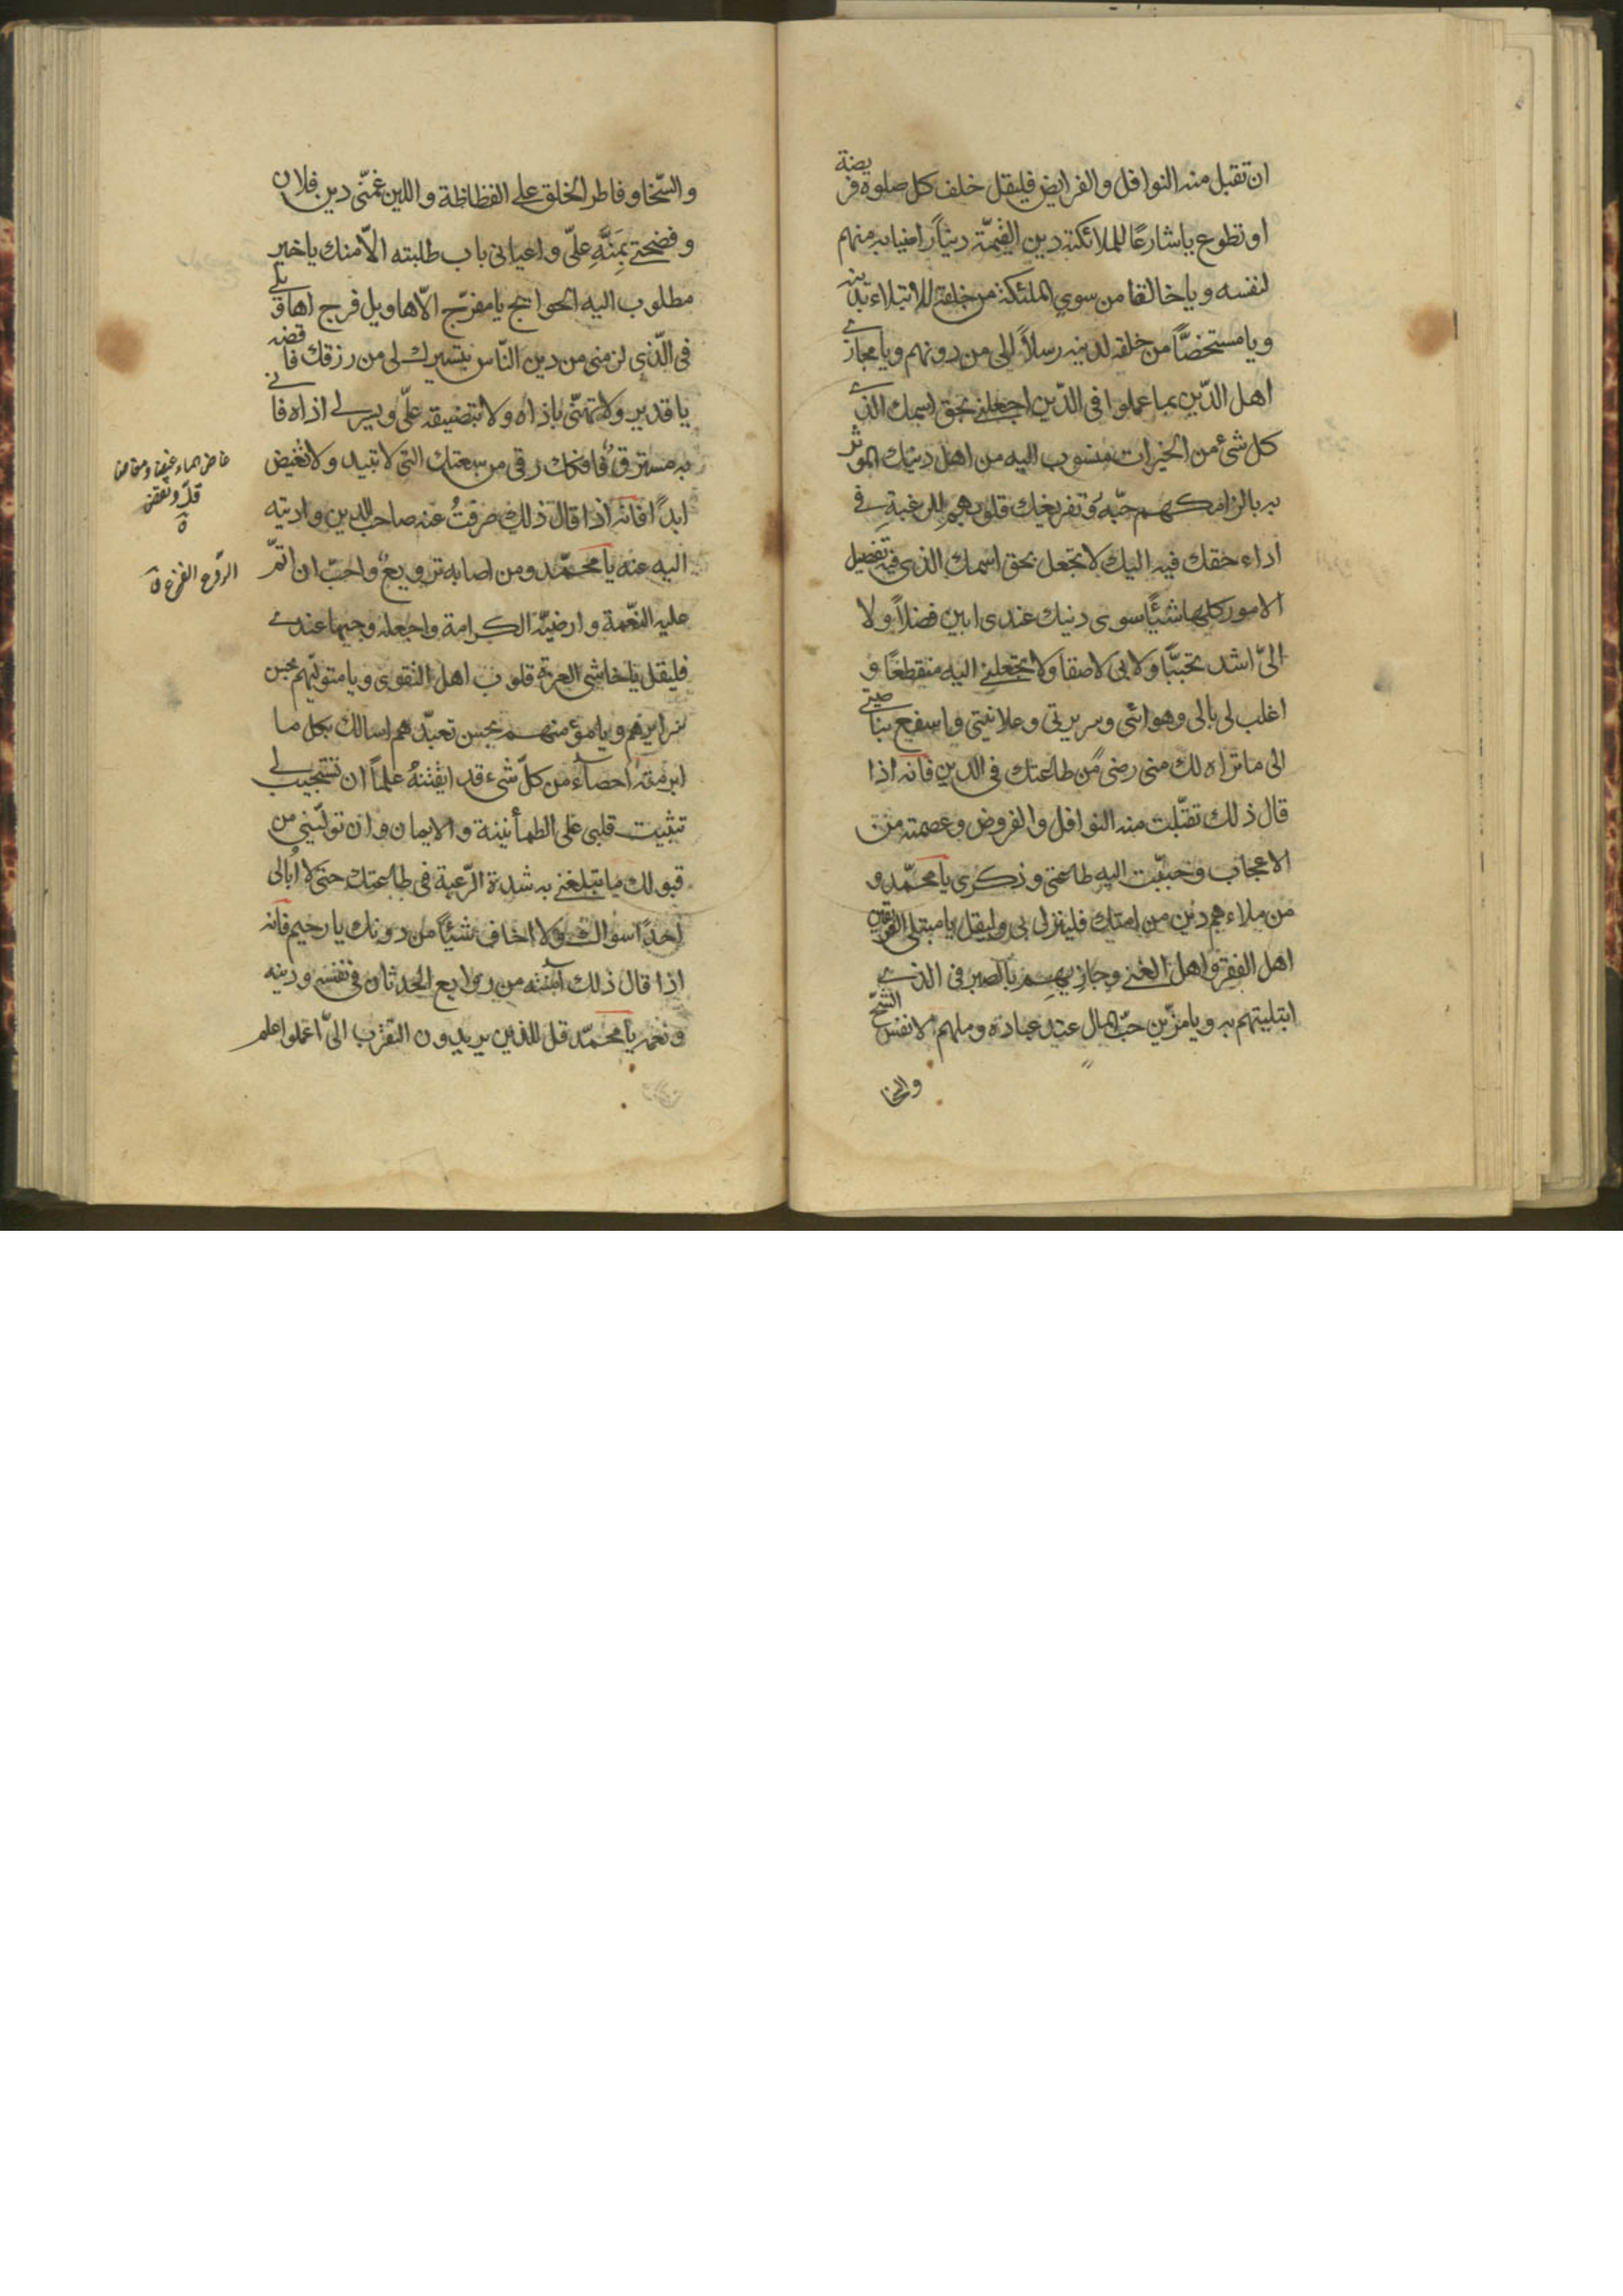 ان تقبل منه النوافل والفرايض فليقل خلف كل صلوة فريضة
او تطوع يا شارعًا للملائكته دين القيّمة دينًا راضيا به منهم
لنفسه ويا خالقا من سوى الملئكة من خلقه للابتلاء بدينه
ويا مستخصًّا من خلقه لدينه رسلاً الى من دونهم ويا مجازى
اهل الدّين بما عملوا فى الدّين اجعلنى بحق اسمك الذى
كل شئ من الخيرات منسوب اليه من اهل دينك الموثر
به بالزامكهم حبّه وتفريغك قلوبهم للرغبة فى
اداء حقك فيه اليك لا تجعل بحق اسمك الذى فيه تفصيل
الامور كلها شيئًا سوى دينك عندى ابين فضلاً ولا
الىّ اشد تحببًا ولا بى لاصقا ولا تجعلنى اليه منقطعًا و
اغلب لى بالى وهوائى وسريرتى وعلانيتى واسفع بناصيتى
الى ما تراه لك منى رضىً من طاعتك فى الدين فانه اذا
قال ذلك تقبّلت منه النوافل والفروض وعصمته من
الاعجاب وحبّبت اليه طاعتى وذكرى يا محمّد و
من ملاءه هم دين من امتك فلينزل بى وليقل يا مبتلى الفريقين
اهل الفقر واهل الغنى وجازيهم بالصبر فى الذى
ابتليتهم به ويا مزّين حبّ المال عند عباده وملهم الانفس الشحّ
والسخا
والسّخا وفاطر الخلق على الفظاظة واللين غمّنى دين فلان
وفضحنى بِمَنِّهِ علىّ واعيانى باب طلبته الّا منك يا خير
مطلوب اليه الحوائج يا مفرّج الاهاويل فرج اهاويلى
فى الّذى لزمنى من دين النّاس بتيسيرك لى من رزقك فاقضه
يا قدير ولا تهنّى باذاه ولا بتضييقه علىّ ويسر لى اذاه فانى
به مسترق فافكك رقى من سعتك التى لا تبيد ولا تغيض
ابدًا فانه اذا قال ذلك صرفتُ عنه صاحب الدين واديته
اليه عنه يا محمّد ومن اصابه ترويع واحبّ ان اتمّ
عليه النّعمة وارضيه الكرامة واجعله وجيها عندى
فليقل يا حاشى العز قلوب اهل التقوى ويا متولّيهم بحسن
سرايرهم ويا مؤمنهم بحسن تعبّدهم اسالك بكل ما
ابرمته احصاءً من كلّ شىء قد اتقنتهُ علماً ان تستجيب لى
تثبيت قلبى على الطمأنينة والايمان وان تولّينى من
قبولك ما تبلغنى به شدة الرّغبة فى طاعتك حتى لا اُبالى
احدًا سواك ولا اخاف شيئًا من دونك يا رحيم فانه
اذا قال ذلك آمنته من روايع الحدثان فى نفسه ودينه
ونعمه يا محمّد قل للذين يريدون التقرّب الىّ اعملوا علم
غاض الماء
قلّ ونقص
الرّوع الفزع